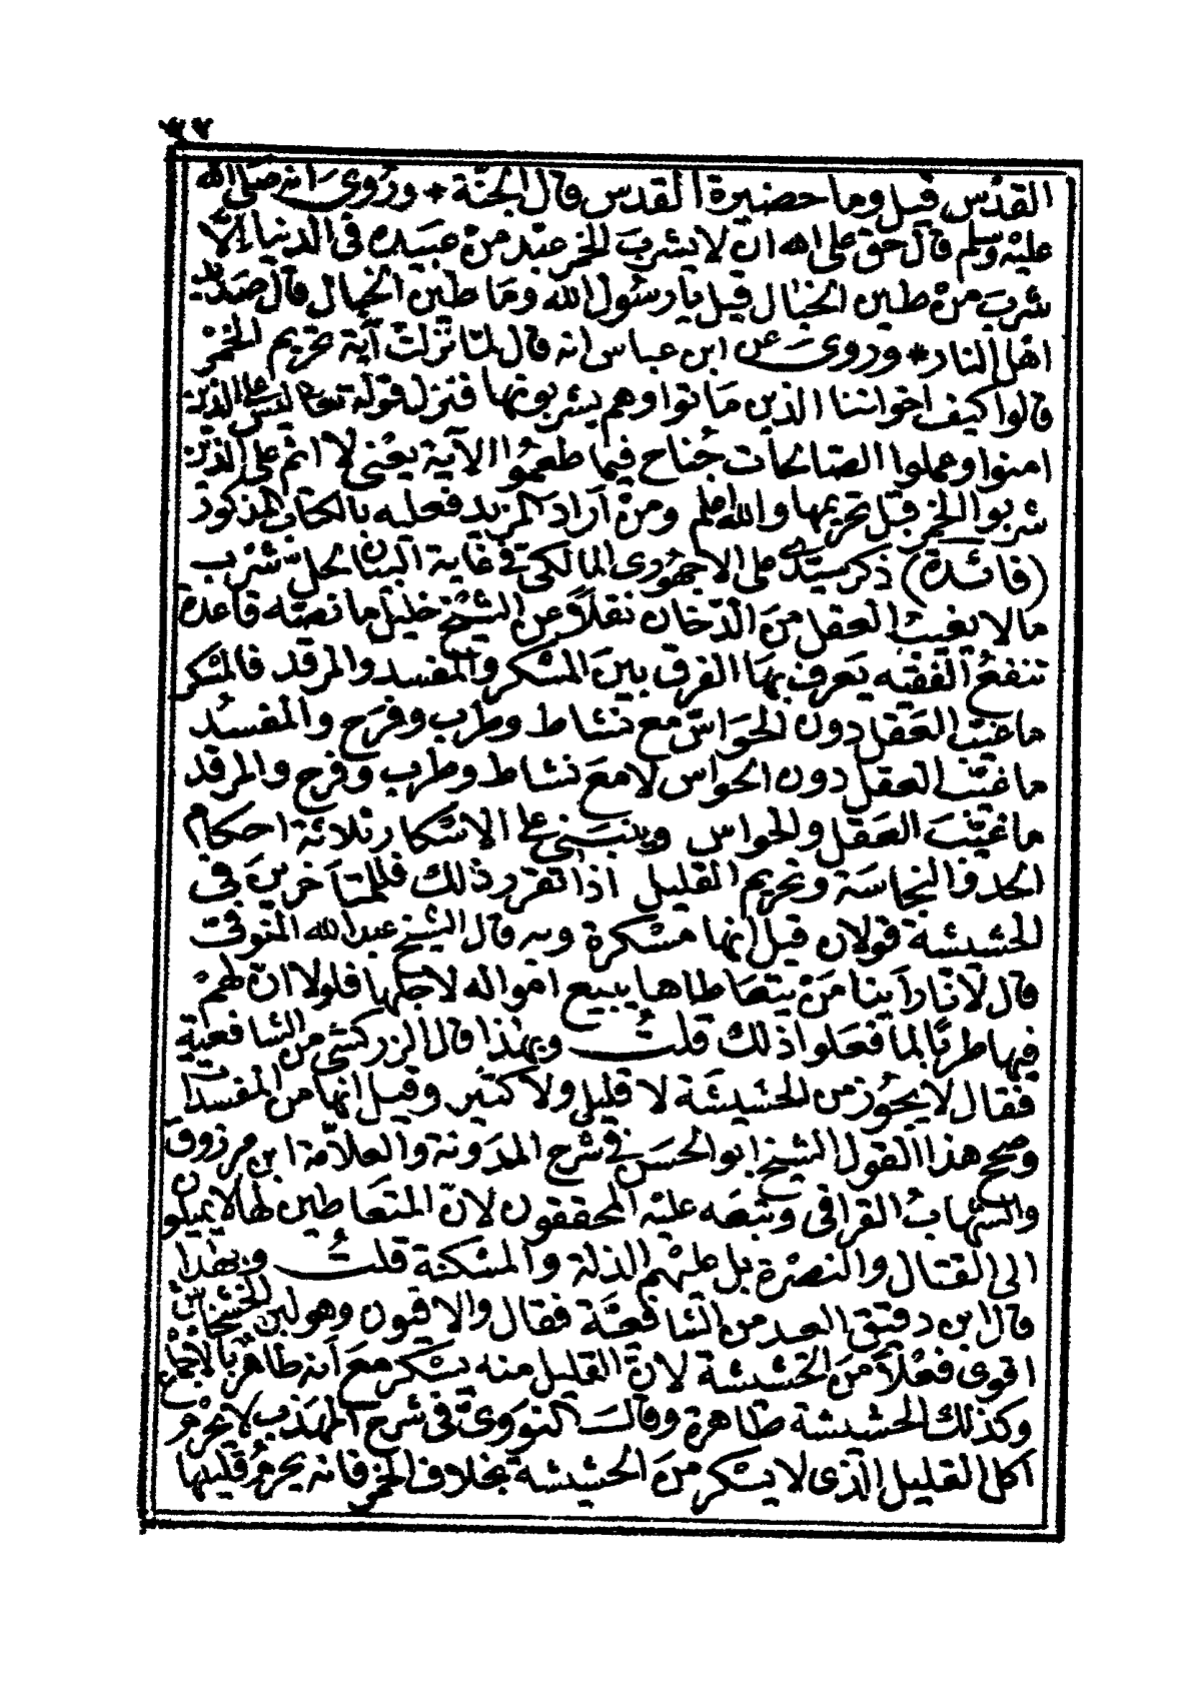 ٣٢
القدْس قيل وما حضيرة القدس قال الجنّة * ورُوىَ انه صلى الله
عليْه وسلم قال حق على الله ان لا يشربَ الخمر عبْد منْ عبَيده فى الدنيا إلّا
شربَ منْ طين الخبَال قيل يا رسُول الله ومَا طين الخبال قال صَديد
اهْل النار * وروىَ عن ابن عباس انه قال لمّا نزلتْ آية تحريم الخمْر
قالوا كيف اخواننا الذين مَاتوا وهم يشربونها فنزل قوله تعالى ليسَ على الذين
امنوا وعملوا الصّالحات جُناح فيما طعمُوا الآية يعْنى لا اثم على الذين
شربوا الخمر قبْل تحريمها والله اعلم ومنْ أرادَ المزيد فعليه بالكتاب المذكور
(فائدة) ذكر سيّدى على الاجهُورى المالكىّ فى غاية البيان لحلّ شرْب
مالا يغيبُ العقل منَ الدّخان نقلاً عن الشيْخ خليل ما نصّه قاعدة
تنفعُ الفقيْه يَعرف بهَا الفرق بينَ المسْكر والمفسد والمرقد فالمسْكر
ما غيّبَ العَقل دون الحوَاسّ مع نشاط وطرَب وفرَح والمفسُد
ما غيّبَ العقل دون الحواس لا معَ نشاط وطرب وفرح والمرقد
ما غيّبَ العَقل والحواس وينبَنى على الاسْكار ثلاثة احكام
الحد والنجاسَة وتحريم القليل اذا تقرر ذلك فللمتأخرينَ فى
الحشيشة قولان قيل انها مسْكرة وبه قال الشيخ عبد الله المنوفى
قال لانّا رأينا مَنْ يتعَاطاها يبيع امواله لاجلها فلولا انّ لهمْ
فيها طربًا لما فعَلوا ذلك قلتُ وبهٰذا قال الزركشى من الشافعيّة
فقال لا يجُوز من الحشيشَة لا قليل ولا كثير وقيل انها من المفسدَات
وصحح هذا القول الشيخ ابو الحسَن فى شرح المدَونة والعلامّة ابن مرزوق
والشهابُ القرافى ونبَّه عليْه المحققون لانّ المتعَاطين لها لا يميلون
الى القتال والنصْرة بل عليْهم الذلة والمسْكنة قلتُ وبهٰذا
قال ابن دقيق العيد من الشافعيَّة فقال والافيون وهو لبن الخشخاش
اقوى فعْلاً منَ الحشيشة لانّ القليل منه يسْكر معَ أنه طاهر بالاجماع
وكذلك الحشيشة طاهرة وقالَ النوَوىّ فى شرح المهذب لا يحرْم
أكل القليل الّذى لا يسْكر منَ الحشيشة بخلاف الخمر فانه يحرمُ قليلها